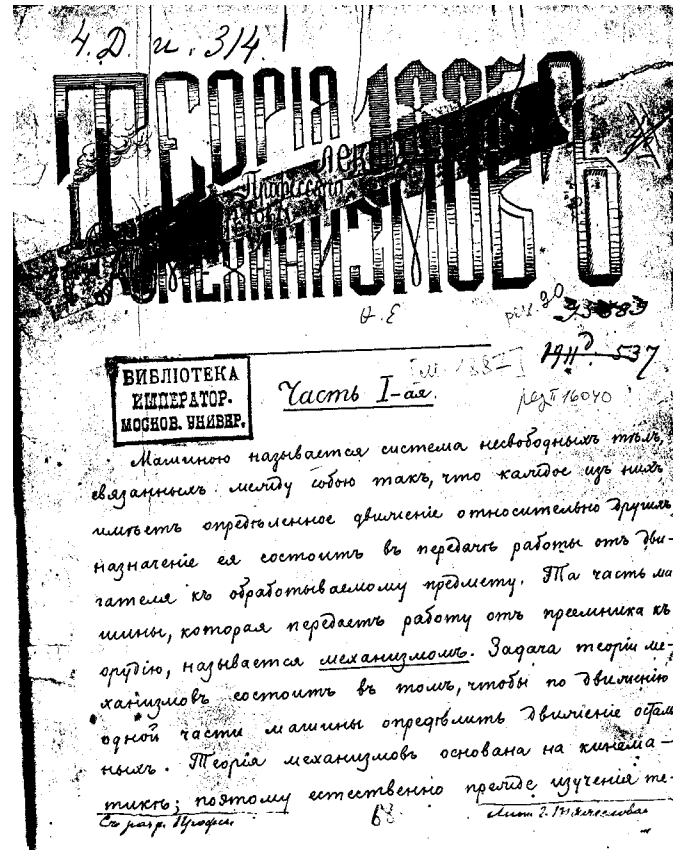 Ч.Д. и. 314.
ТЕОРІЯ
1885
ЛЕКЦ
Профессора
МЕХАНИЗМОВЪ
537
16040
БИБЛІОТЕКА
ИМПЕРАТОР.
МОСКОВ. УНИВЕР.
Часть I-ая.
Машиною называется система несвободныхъ тѣлъ,
связанныхъ между собою такъ, что каждое изъ нихъ
имѣетъ опредѣленное движеніе относительно другихъ,
назначеніе ея состоитъ въ передачѣ работы отъ дви-
гателя къ обработываемому предмету. Та часть ма
шины, которая передаетъ работу отъ пріемника къ
орудію, называется механизмомъ. Задача теоріи ме-
ханизмовъ состоитъ въ томъ, чтобы по движенію
одной части машины опредѣлить движеніе осталь
ныхъ. Теорія механизмовъ основана на кинема-
тикѣ; поэтому естественно прежде изученія те-
Съ разр. Профес.